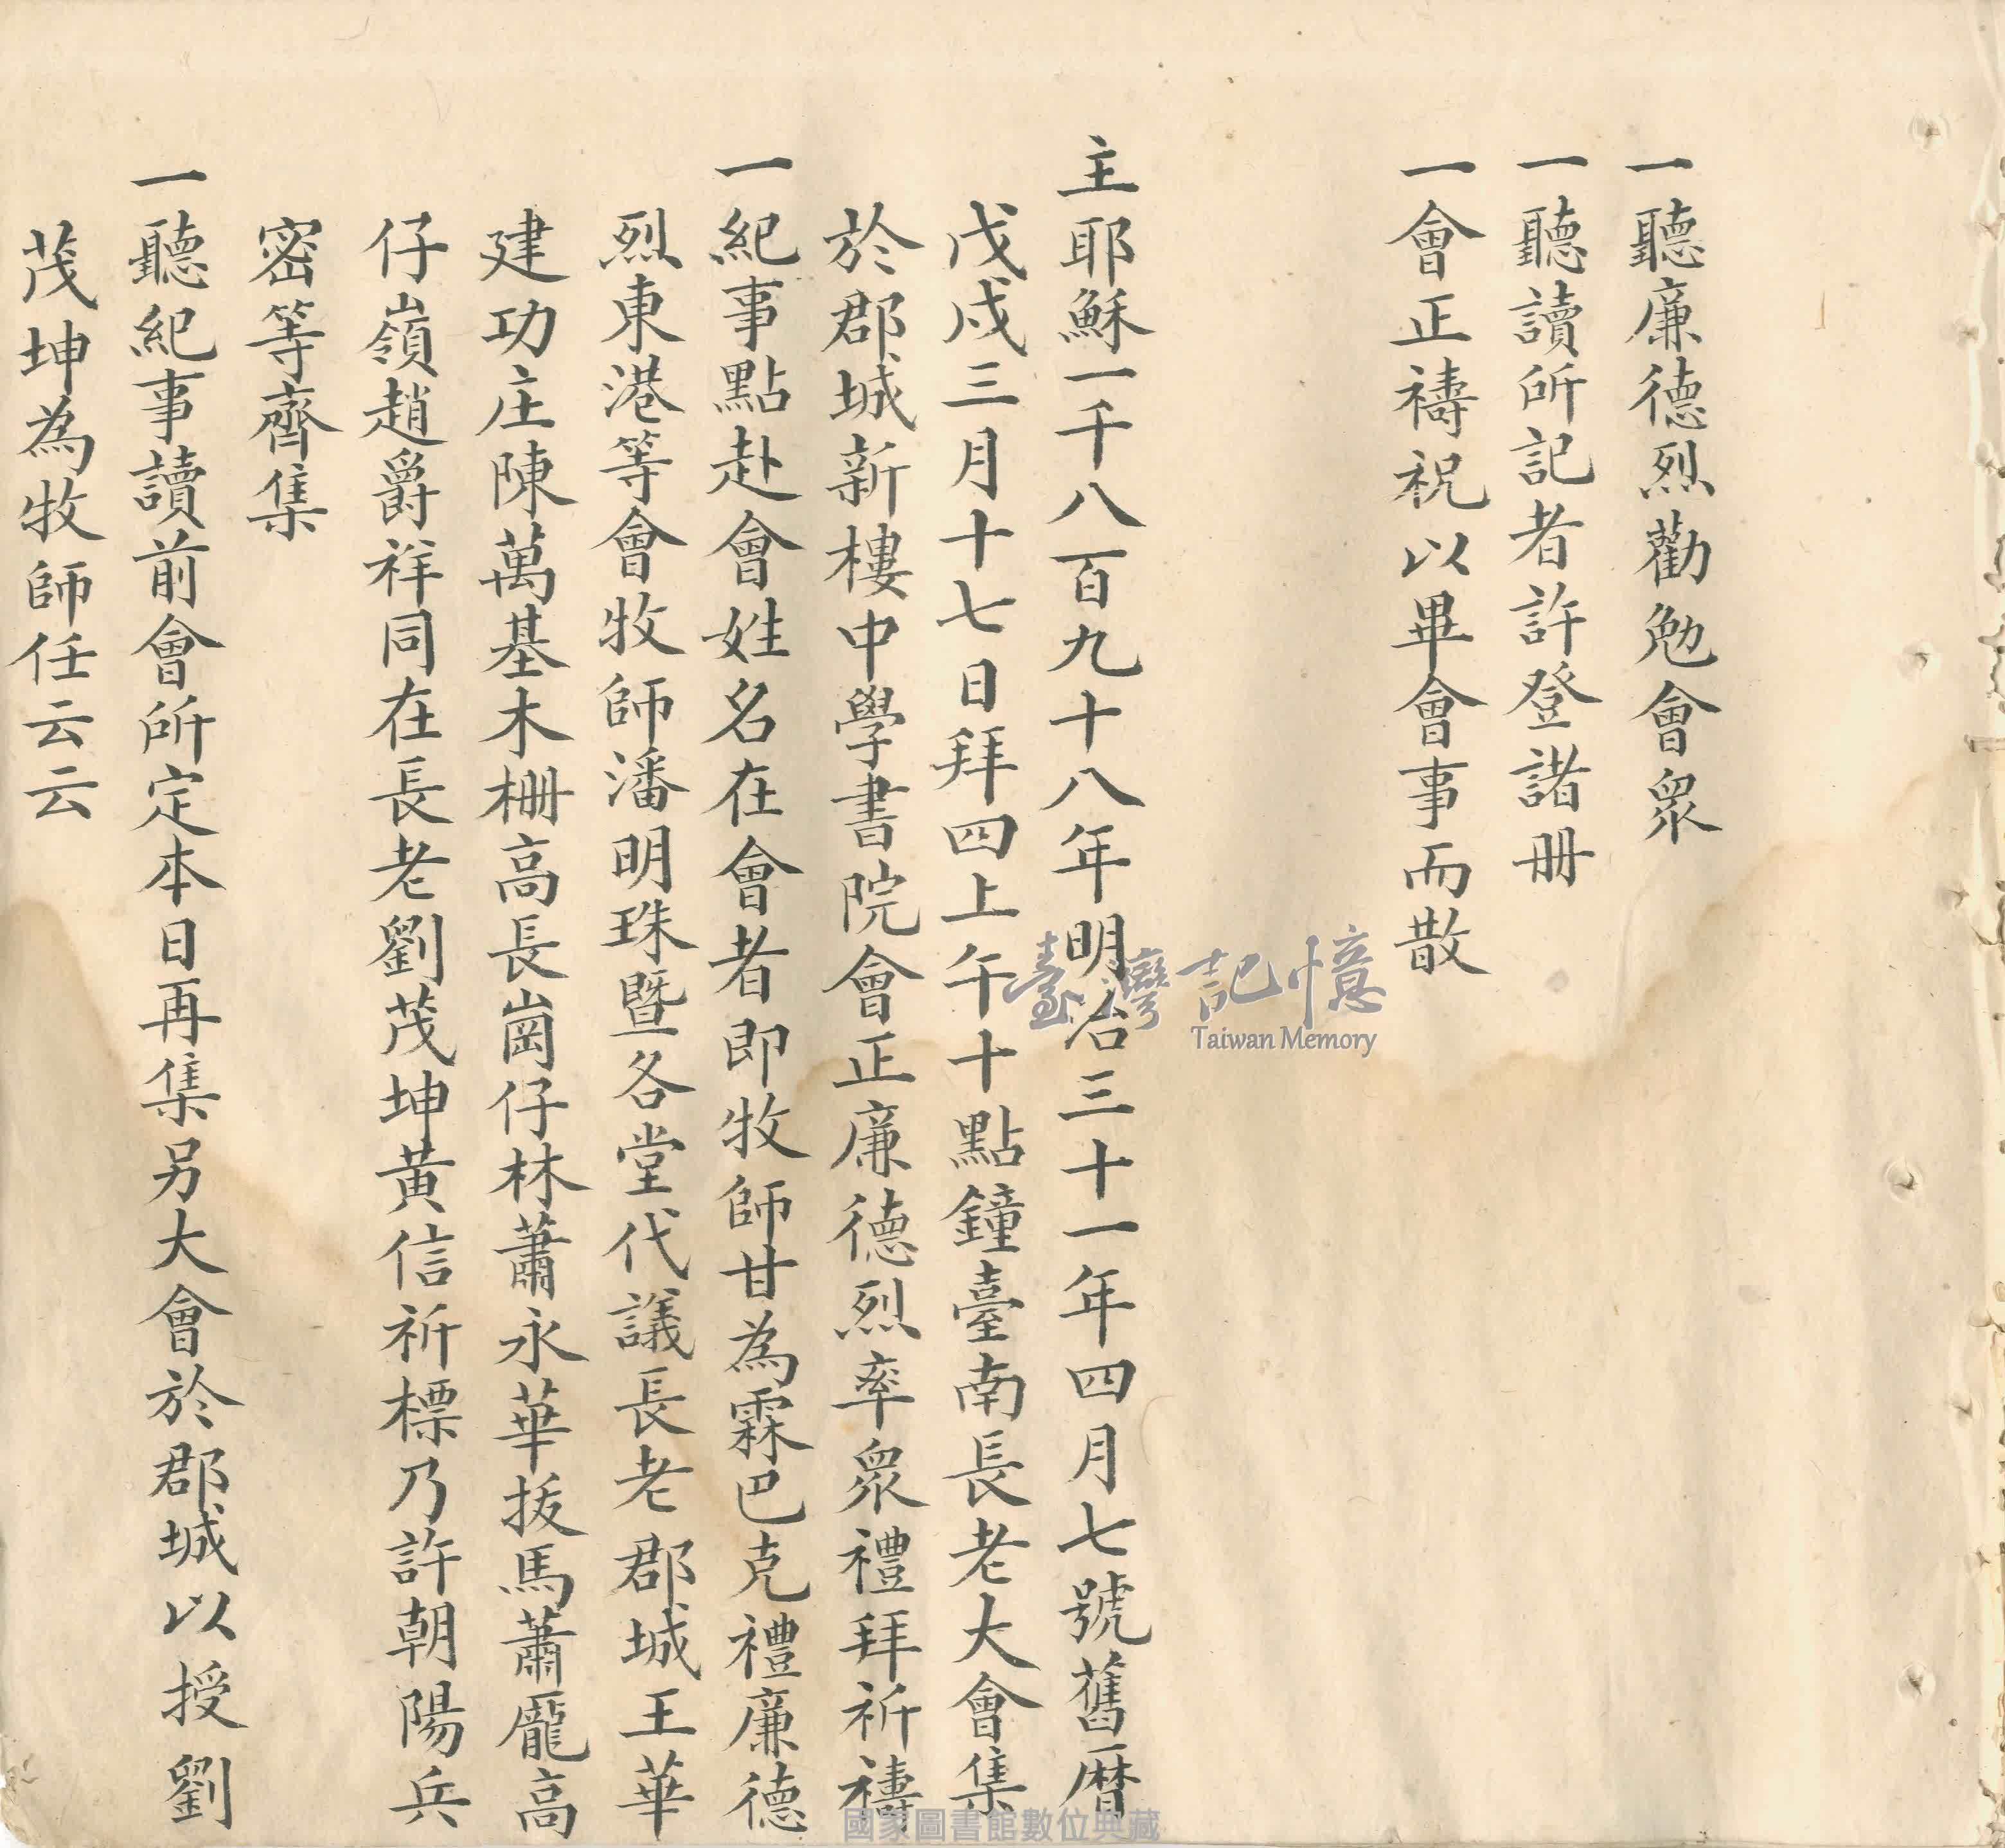 一聽廉德烈勸勉會眾
一聽讀所記者許登諸册
一會正禱祝以畢會事而散
主耶穌一千八百九十八年明治三十一年四月七號舊曆
戊戌三月十七日拜四上午十點鐘臺南長老大會集
於郡城新樓中學書院會正廉德烈率眾禮拜祈禱
一紀事點赴會姓名在會者即牧師甘為霖巴克禮廉德
烈東港等會牧師潘明珠暨各堂代議長老郡城王華
建功庄陳萬基木柵高長崗仔林蕭永華拔馬蕭龎高
仔嶺趙爵祥同在長老劉茂坤黃信祈標乃許朝陽兵
密等齊集
一聽紀事讀前會所定本日再集另大會於郡城以授劉
茂坤為牧師任云云
臺灣記憶
Taiwan Memory
國家圖書館數位典藏